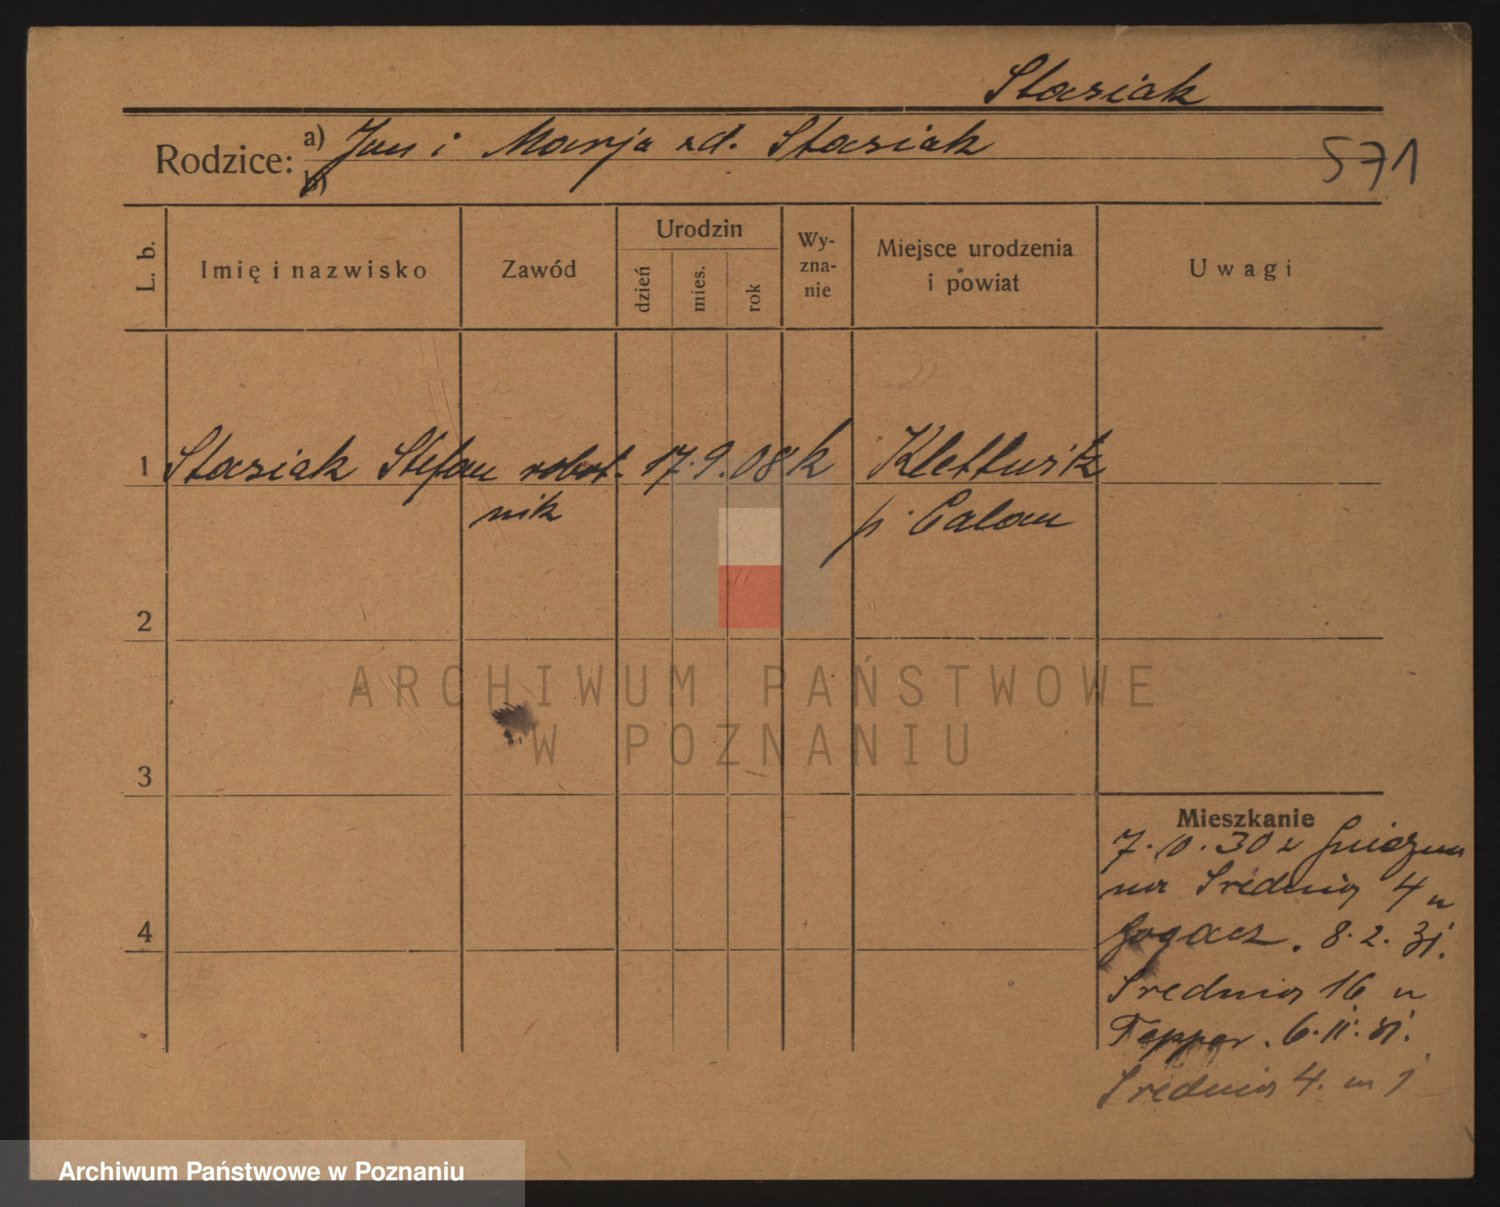 Stasiak
Rodzice: a) Jan i Marja zd. Stasiak
b)
571
L. b.
Imię i nazwisko
Zawód
Urodzin
dzień
mies.
rok
Wy-
zna-
nie
Miejsce urodzenia
i powiat
Uwagi
1 Stasiak Stefan robot- 17.9.08 k Klettwitz
nik p. Calau
2
3
4
Mieszkanie
7.10.30 z
na Srednia 4 u
8.2.31.
Srednia 16 u
Tepper. 6.11.31.
Srednia 4. m 1
ARCHIWUM PAŃSTWOWE
W POZNANIU
Archiwum Państwowe w Poznaniu